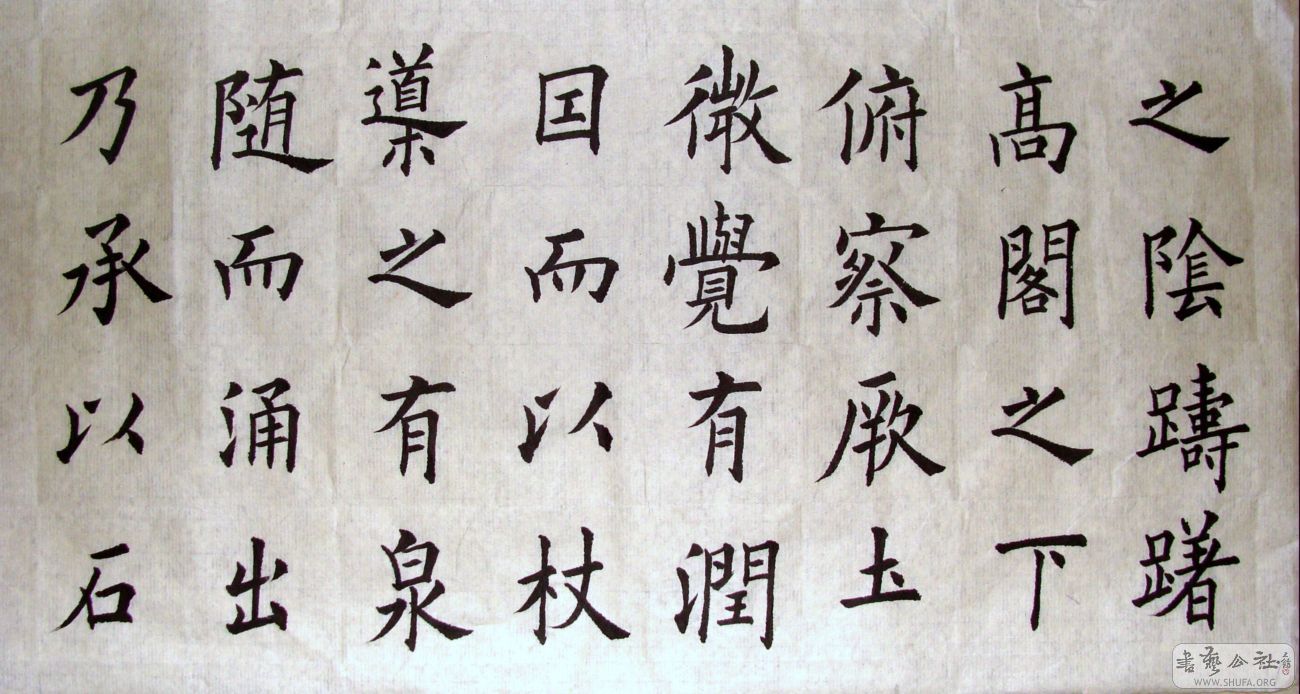 之陰躊躇
高閣之下
俯察厥土
微覺有潤
囯而以杖
導之有泉
随而涌出
乃承以石
書藝公社
WWW.SHUFA.ORG